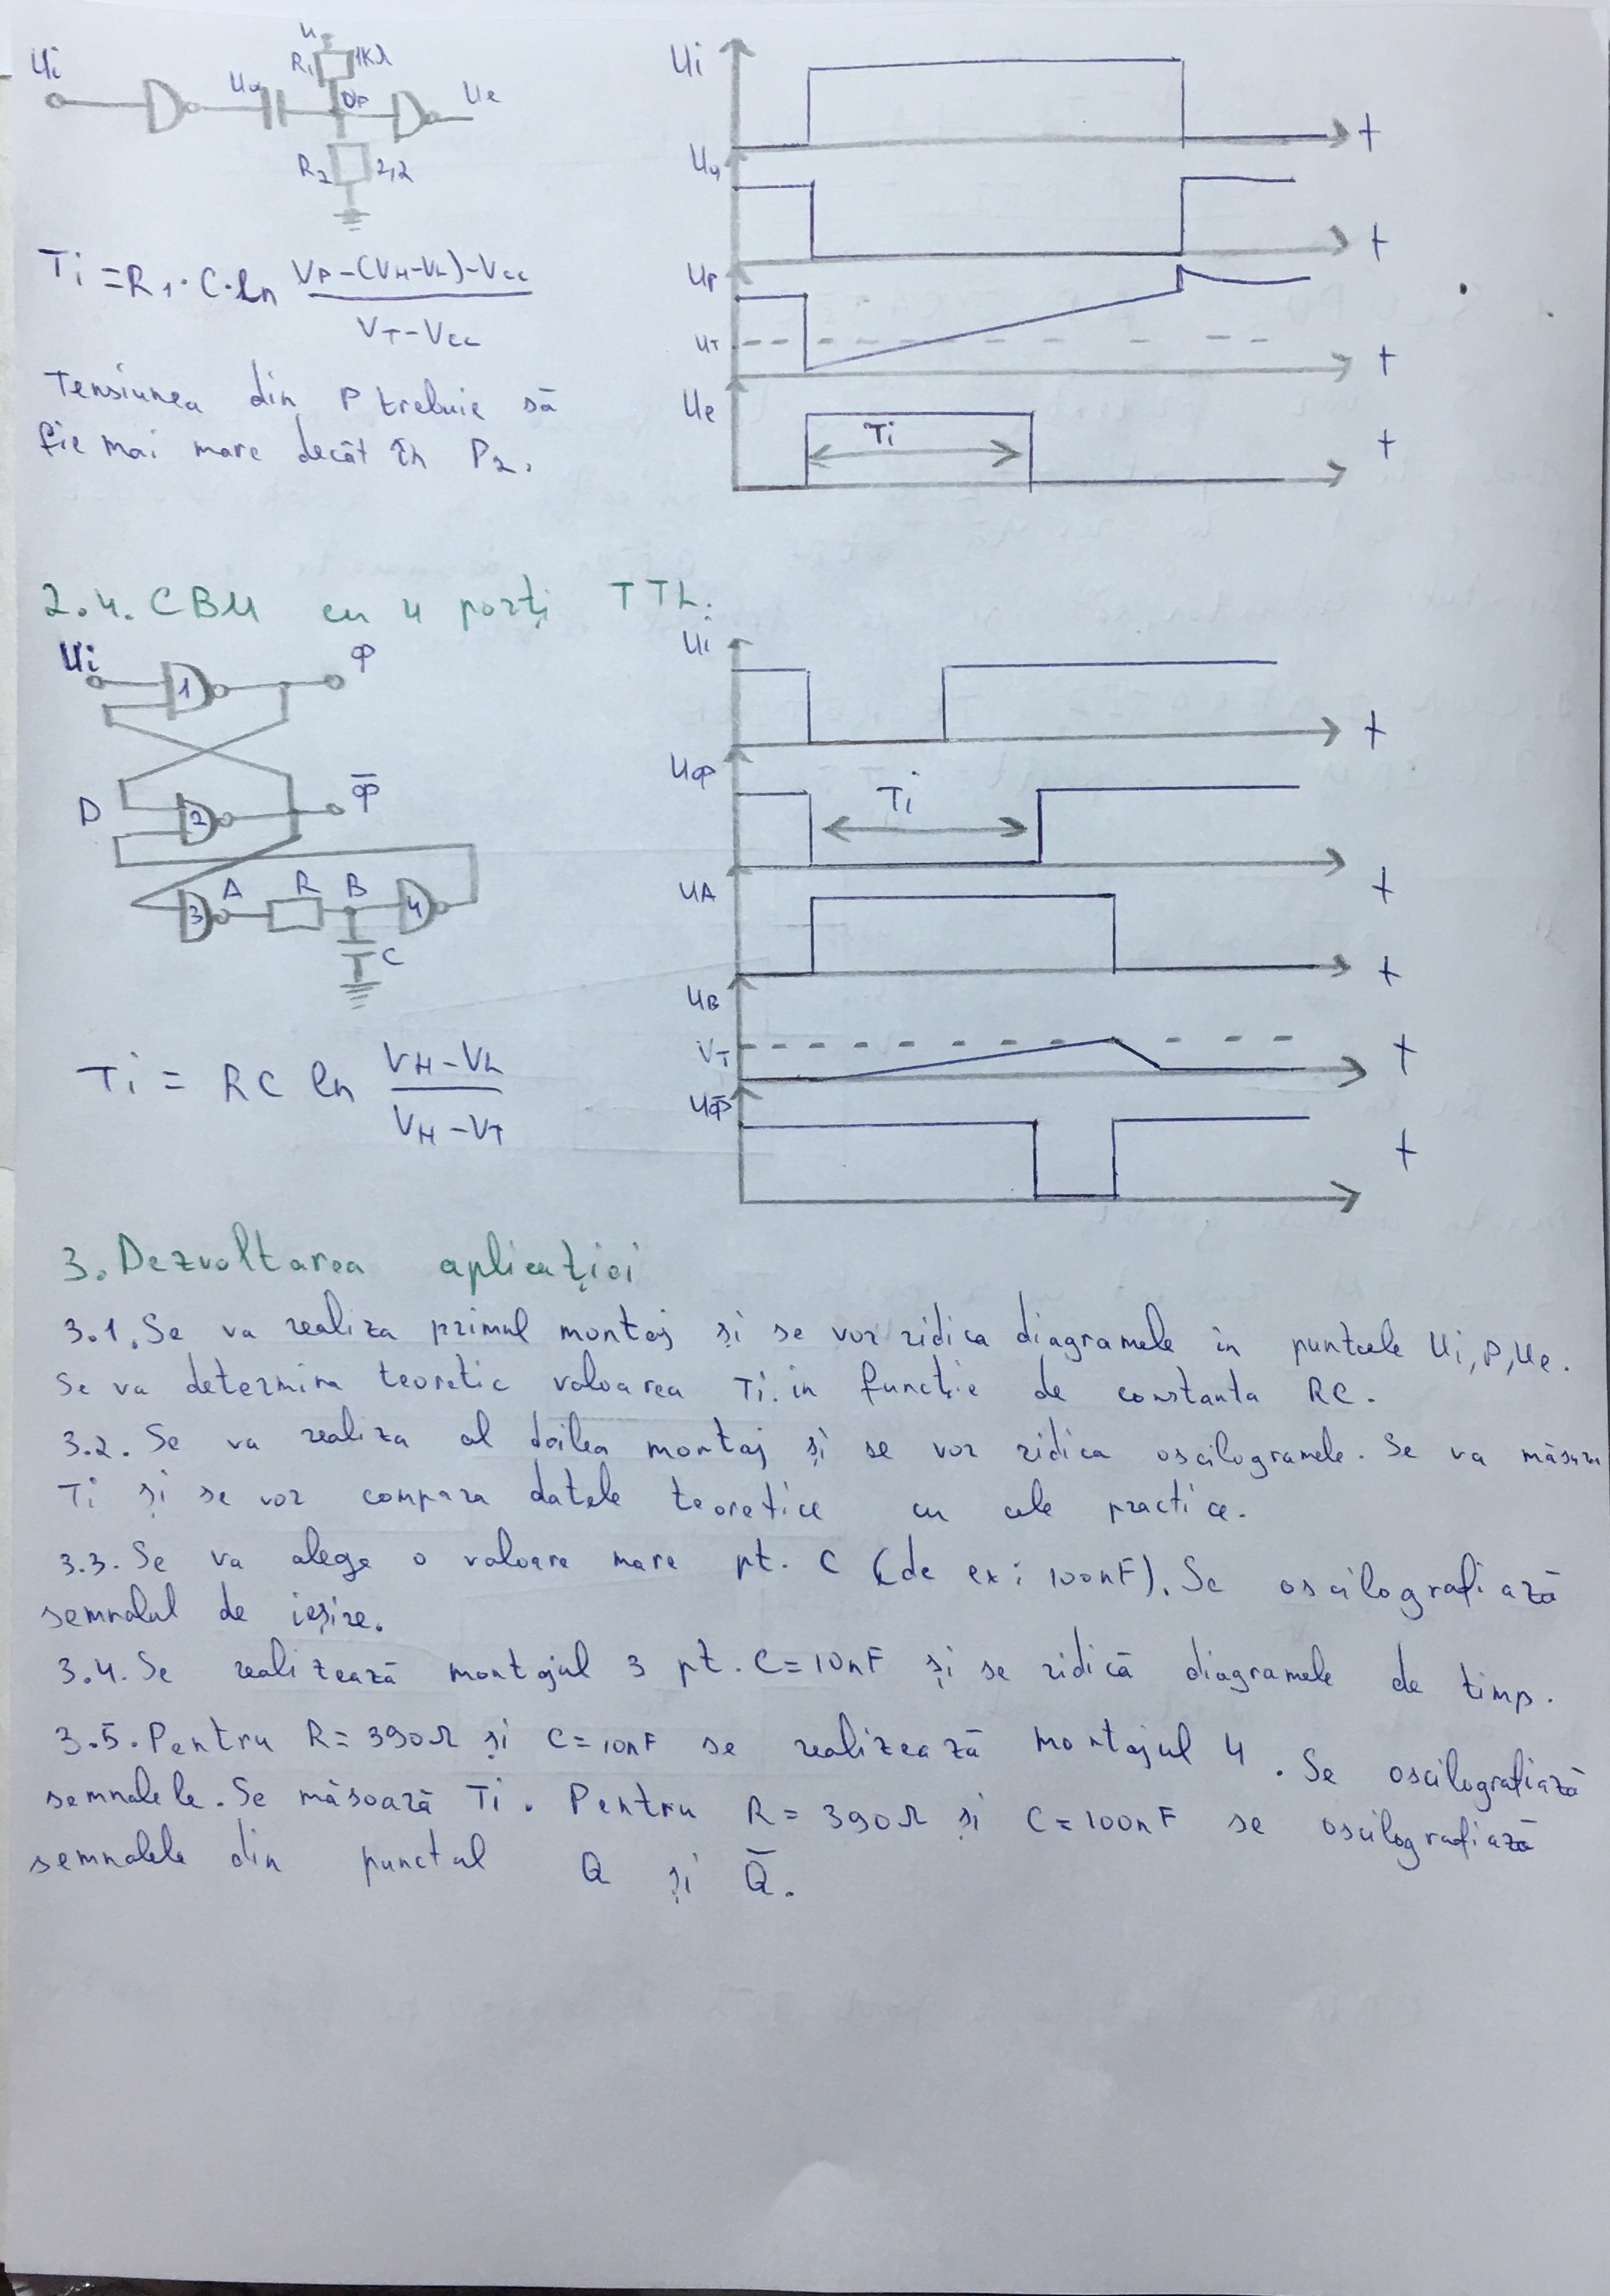 Ui
U
R1 1KΩ
Uα
Up
Ue
R2 2,2
Ti = R1·C·ln (VP-(VH-VL)-Vcc) / (VT-Vcc)
Tensiunea din P trebuie să
fie mai mare decât în P2.
Ui
t
t
UP
UT
t
Ue
Ti
t
2.4. CBM cu 4 porți TTL.
Ui
1
Φ
D
2
Φ̅
3
A
R
B
4
C
Ti = RC ln (VH-VL) / (VH-VT)
Ui
t
UΦ
Ti
t
UA
t
UB
VT
t
UΦ̅
t
3. Dezvoltarea aplicației
3.1. Se va realiza primul montaj și se vor ridica diagramele în punctele Ui, P, Ue.
Se va determina teoretic valoarea Ti în funcție de constanta RC.
3.2. Se va realiza al doilea montaj și se vor ridica oscilogramele. Se va măsura
Ti și se vor compara datele teoretice cu cele practice.
3.3. Se va alege o valoare mare pt. C (de ex: 100nF). Se oscilografiază
semnalul de ieșire.
3.4. Se realizează montajul 3 pt. C=10nF și se ridică diagramele de timp.
3.5. Pentru R=390Ω și C=10nF se realizează montajul 4. Se oscilografiază
semnalele. Se măsoară Ti. Pentru R=390Ω și C=100nF se oscilografiază
semnalele din punctul Q și Q̅.